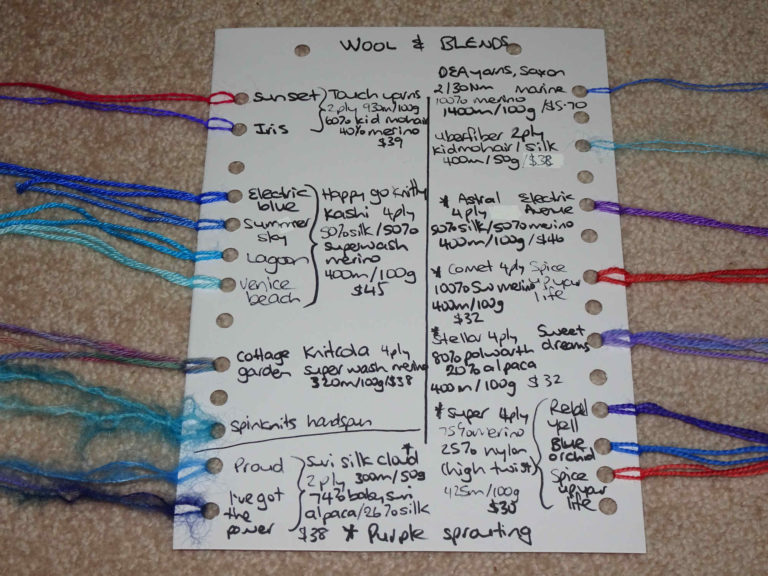 WOOL & BLENDS
Sunset
Iris
Touch yarns
2 ply 930m/100g
60% kid mohair
40% merino
$39
Electric
blue
Summer
sky
Lagoon
Venice
beach
Happy go knitty
Kashi 4ply
50% silk/50%
superwash
merino
400m/100g
$45
Cottage
garden
Knitcola 4ply
super wash merino
320m/100g/$38
Spinknits handspun
Proud
I've got
the
power
Suri silk cloud*
2 ply 300m/50g
74% baby suri
alpaca/26% silk
$38
* Purple sprouting
DEA yarns, Saxon
2/30Nm marine
100% merino
1400m/100g/$15.70
uberfiber 2ply
kidmohair/silk
400m/50g/$38
* Astral Electric
4 ply Avenue
50% silk/50% merino
400m/100g/$46
* Comet 4ply Spice
100% SW merino up your
400m/100g life
$32
*
Stellar 4ply Sweet
80% polwarth dreams
20% alpaca
400m/100g $32
* Super 4ply
75% merino
25% nylon
(high twist)
425m/100g
$30
Rebel
yell
Blue
orchid
Spice
up your
life